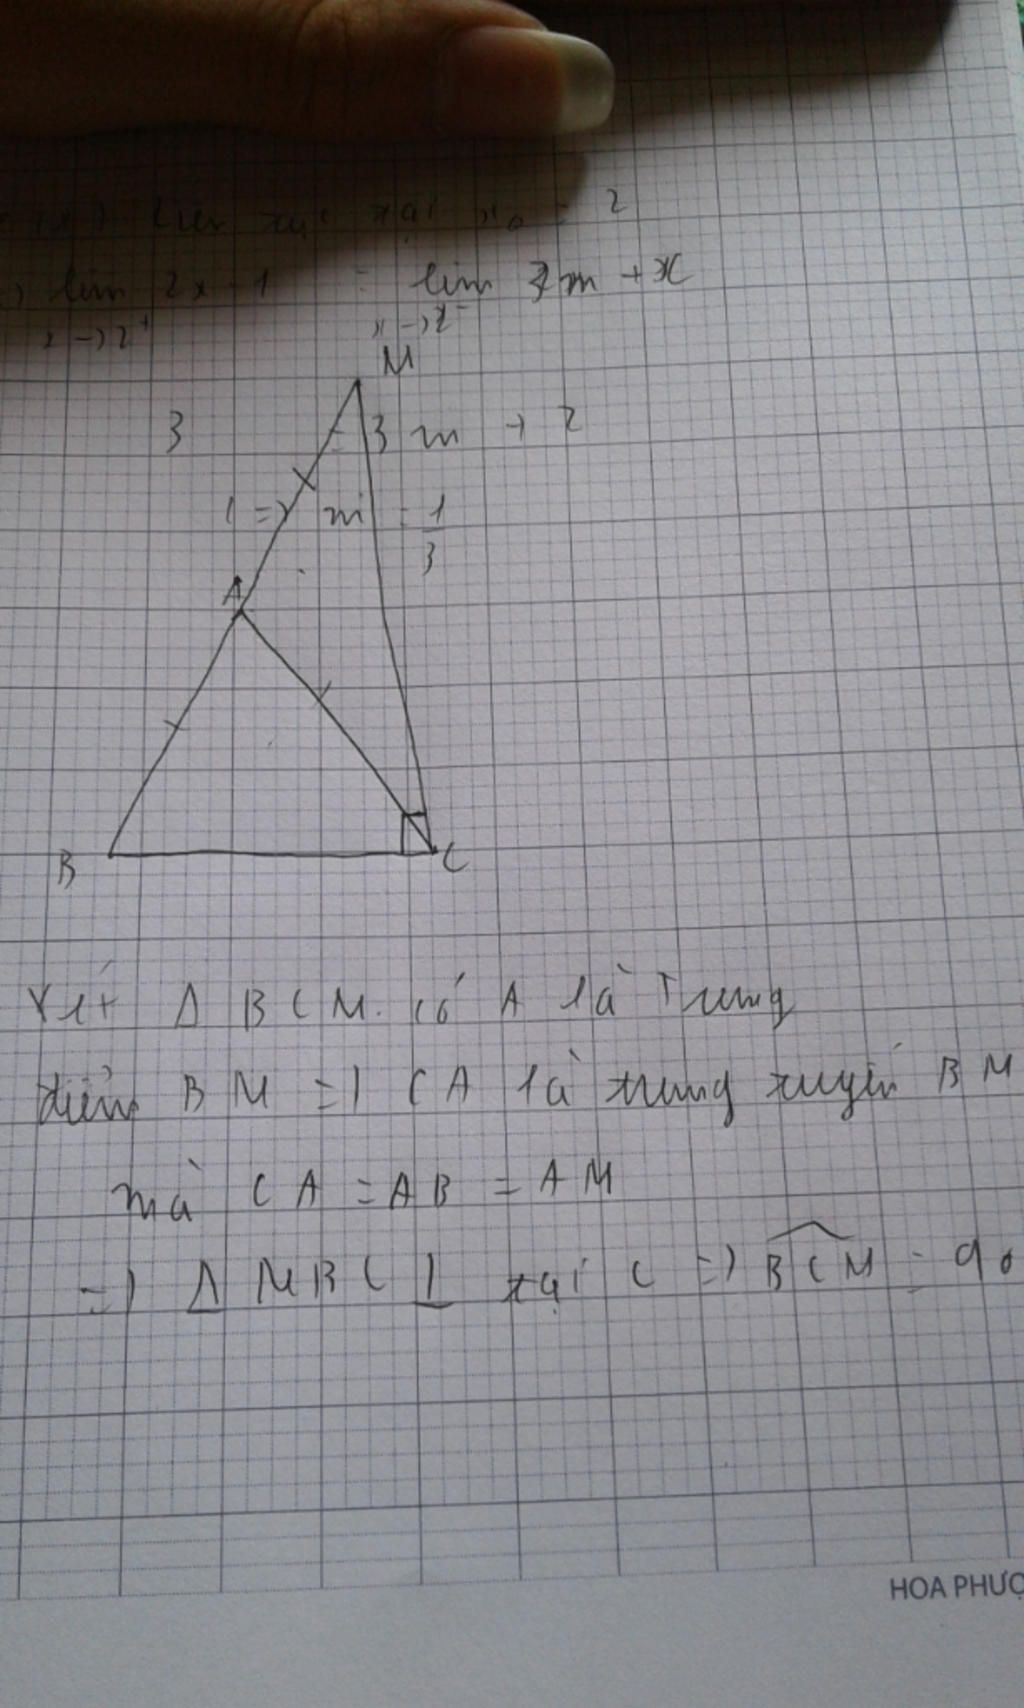 liên tục tại x₀ = 2
lim 2x - 1 = lim 3m + x
x→2⁺ x→2⁻
M
3 = 3m + 2
(=) m = 1/3
A
B C
Xét Δ BCM. có A là Trung
điểm BM =) CA là trung tuyến BM
mà CA = AB = AM
=) Δ MBC ⊥ tại C =) BCM = 90
HOA PHƯỢ